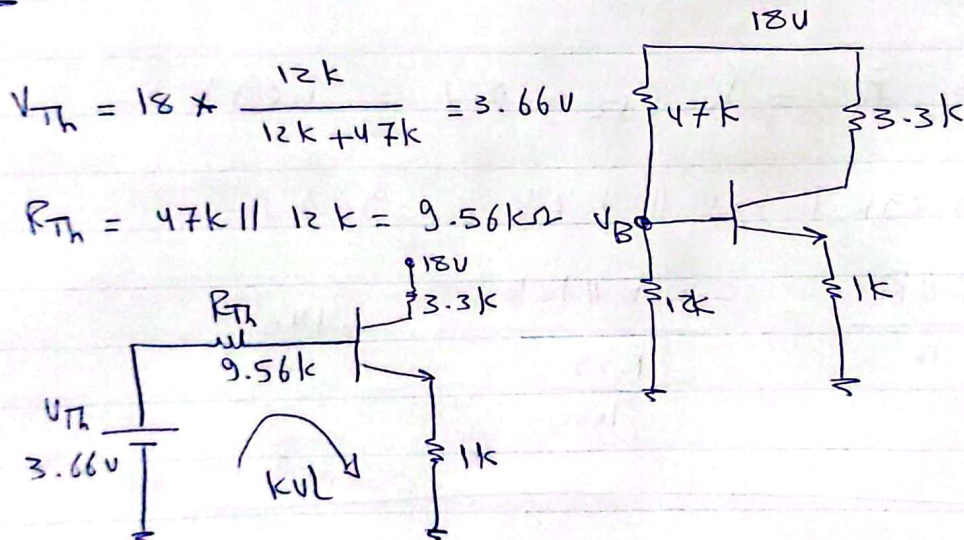 18V
V_Th = 18 * 12k / (12k + 47k) = 3.66V
47k
3.3k
R_Th = 47k || 12k = 9.56kΩ
V_B
12k
1k
18V
3.3k
R_Th
9.56k
V_Th
3.66V
KVL
1k